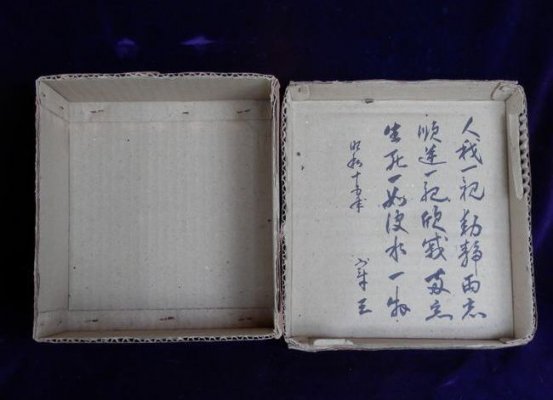 人我一視動静両忘
順逆一視欣戚両忘
生死一如波水一物
昭和十五年